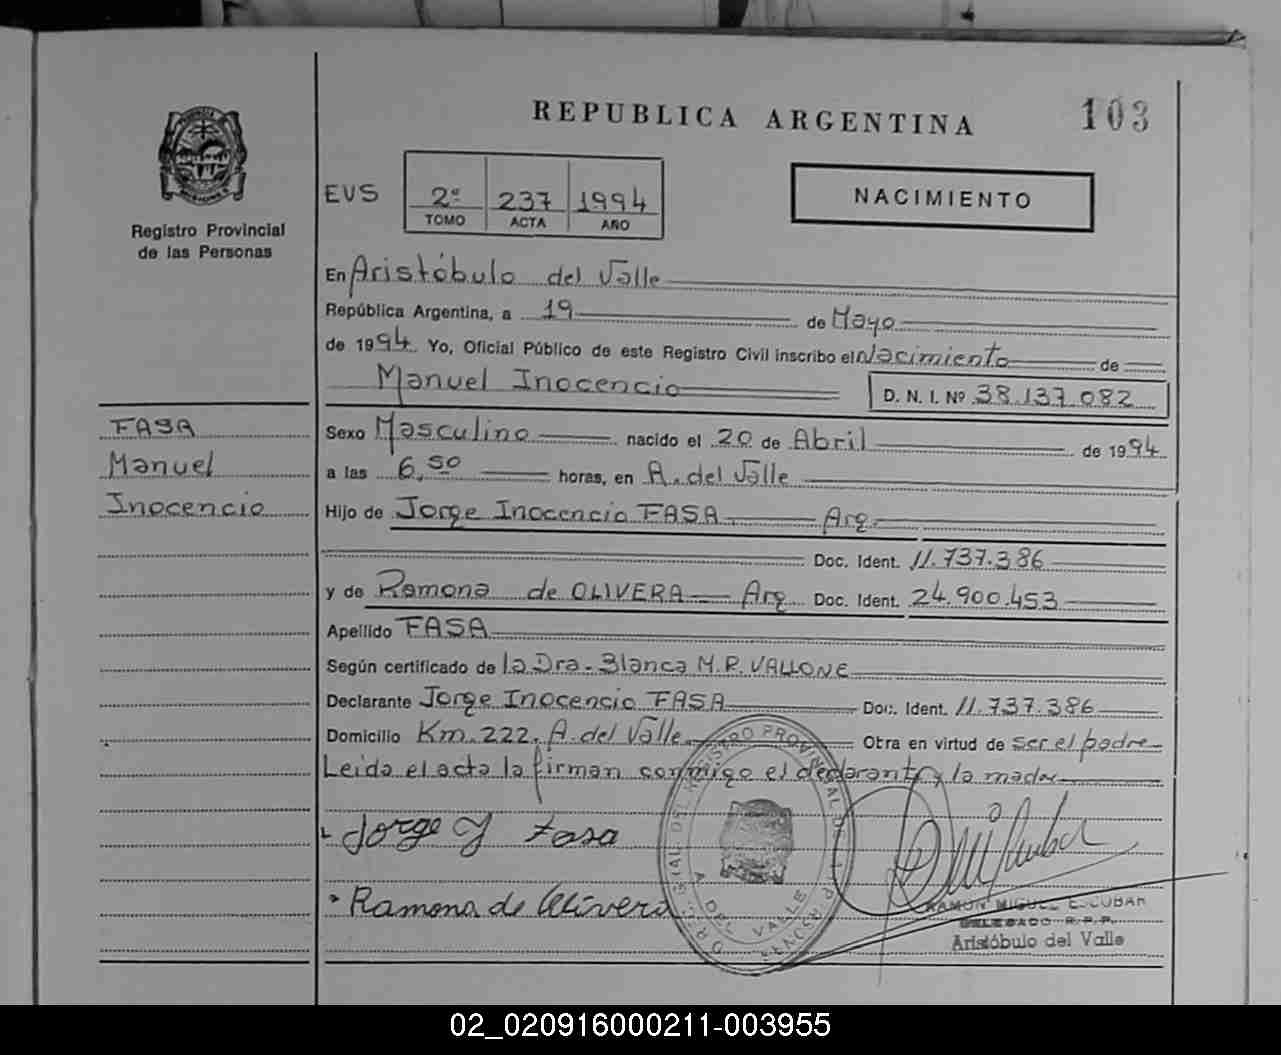 REPUBLICA ARGENTINA
103
Registro Provincial
de las Personas
EVS
2º 237 1994
TOMO ACTA AÑO
NACIMIENTO
En Aristóbulo del Valle
República Argentina, a 19 de Mayo
de 1994. Yo, Oficial Público de este Registro Civil inscribo el Nacimiento de
Manuel Inocencio
D. N. I. Nº 38.137.082
FASA
Manuel
Inocencio
Sexo Masculino nacido el 20 de Abril de 1994
a las 6,50 horas, en A. del Valle
Hijo de Jorge Inocencio FASA Arg.
Doc. Ident. 11.737.386
y de Ramona de OLIVERA Arg. Doc. Ident. 24.900.453
Apellido FASA
Según certificado de la Dra. Blanca M.R. VALLONE
Declarante Jorge Inocencio FASA Doc. Ident. 11.737.386
Domicilio Km. 222. A. del Valle Otra en virtud de ser el padre
Leída el acta la firman conmigo el declarante y la madre
Jorge I Fasa
Ramona de Olivera
A. DEL VALLE
RAMON MIGUEL ESCOBAR
DELEGADO R.P.P.
Aristóbulo del Valle
02_020916000211-003955